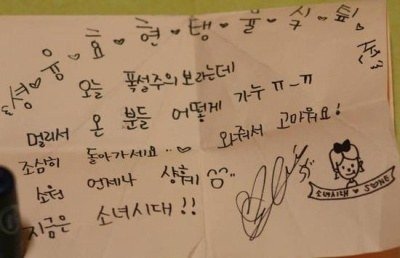 셩♥융♥효♥현♥탱♥율♥싴♥팊♥
오늘 폭설주의보라는데
멀리서 온 분들 어떻게 가누 ㅠ_ㅠ
조심히 돌아가세요..♥ 와줘서 고마워요!
소원 언제나 샹훼 ^^..
지금은 소녀시대!!
소녀시대♥SONE